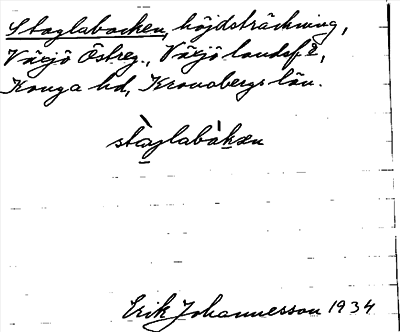 Staglabacken, höjdsträckning,
Växjö Östreg., Växjö landsf.,
Konga hd, Kronobergs län.
stàglabàkæn
Erik Johannesson 1934